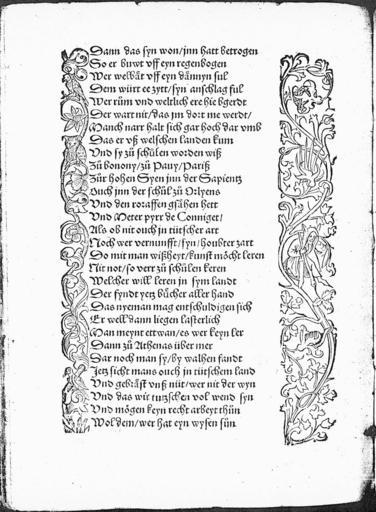 Dann das syn won/jnn hatt betrogen
So er buwt vff eyn regenbogen
Wer welbt vff eyn dännyn sul
Dem würt ee zytt/syn anschlag ful
Wer rům vnd weltlich ere hie bgerdt
Der wart nit/das jm dort me werdt/
Manch narr halt sich gar hoch dar vmb
Das er vß welschen landen kum
Vnd sy zů schůlen worden wiß
Zů bonony/zů Pauy/Pariß
Zůr hohen Syen jnn der Sapientz
Ouch jnn der schůl zů Orlyens
Vnd den roraffen gsåhen hett
Vnd Meter pyrr de Conniget/
Als ob nit ouch jn tütscher art
Noch wer vernunfft/syn/houbter zart
Do mit man wißheyt/kunst möcht leren
Nit not/so verr zů schůlen keren
Welcher will leren jn sym landt
Der fyndt yetz bůcher aller hand
Das nyeman mag entschuldigen sich
Er well dann liegen lasterlich
Man meynt ettwan/es wer keyn ler
Dann zů Athenas über mer
Dar noch man sy/by walhen fandt
Jetz sicht mans ouch jn tütschem land
Vnd gebråst vnß nüt/wer nit der wyn
Vnd das wir tutzschen vol wend syn
Vnd mögen keyn recht arbeyt thůn
Wol dem/wer hat eyn wysen sůn